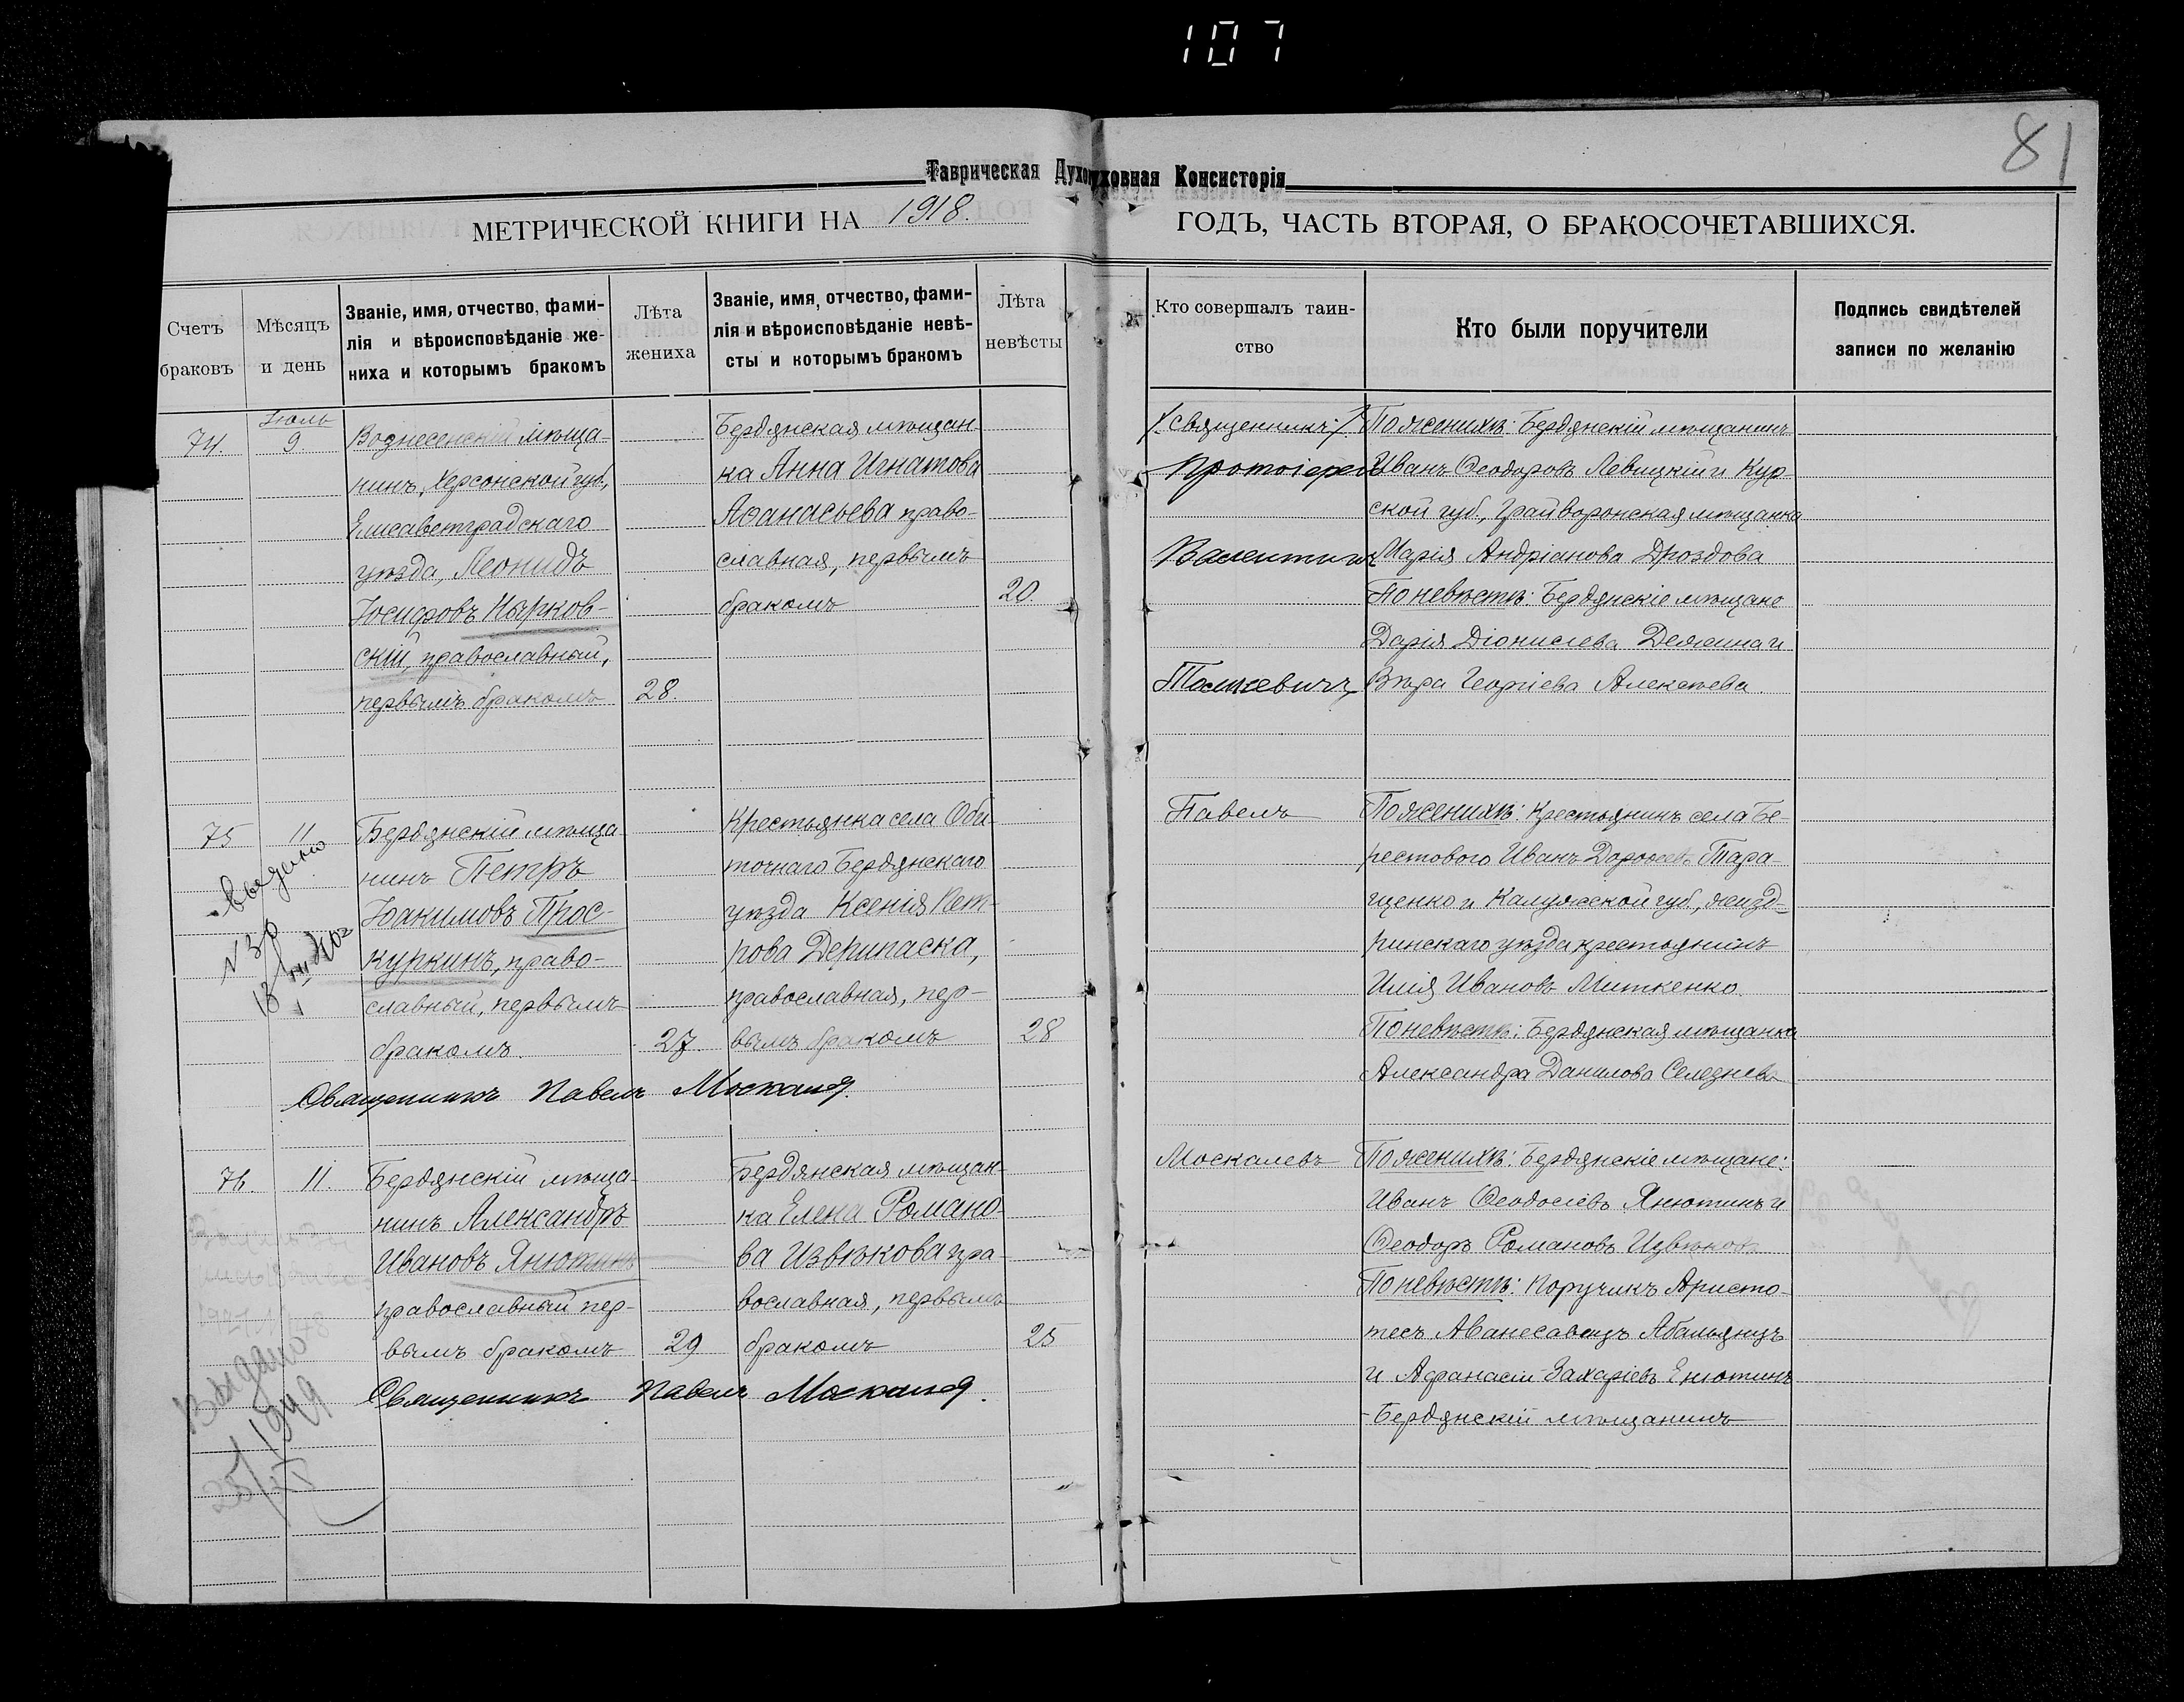 107
81
Таврическая Духовная Консисторія
МЕТРИЧЕСКОЙ КНИГИ НА 1918. ГОДЪ, ЧАСТЬ ВТОРАЯ, О БРАКОСОЧЕТАВШИХСЯ.
Счетъ браковъ
Мѣсяцъ и день
Званіе, имя, отчество, фами-
лія и вѣроисповѣданіе же-
ниха и которымъ бракомъ
Лѣта жениха
Званіе, имя, отчество, фами-
лія и вѣроисповѣданіе невѣ-
сты и которымъ бракомъ
Лѣта невѣсты
Кто совершалъ таин-
ство
Кто были поручители
Подпись свидѣтелей
записи по желанію
74.
Іюль
9.
Вознесенскій мѣща-
нинъ, Херсонской губ.,
Елисаветградскаго
уѣзда, Леонидъ
Іосифовъ Цырков-
скій, православный,
первымъ бракомъ
28.
Бердянская мѣщан
ка Анна Игнатова
Аѳанасьева право-
славная, первымъ
бракомъ
20.
Священникъ:
Протоіерей
Валентинъ
По женихѣ: Бердянскій мѣщанинъ
Иванъ Ѳеодоровъ Левицкій и Кур-
ской губ., Грайворонская мѣщанка
Марія Андріанова Дроздова
По невѣстѣ: Бердянскіе мѣщане
Дарія Діонисіева и
Вѣра Георгіева Алексѣева.
75
11
Бердянскій мѣща-
нинъ Петръ
Іоакимовъ Прос-
куркинъ, право-
славный, первымъ
бракомъ.
27.
Крестьянка села Оби-
точнаго Бердянскаго
уѣзда Ксенія Пет-
рова Дерипаска,
православная, пер-
вымъ бракомъ
28
Священникъ Павелъ
Павелъ
По женихѣ: Крестьянинъ села Бе-
рестового Иванъ Дороѳеевъ Тара-
щенко и Калужской губ., Жизд-
ринскаго уѣзда крестьянинъ
Илія Ивановъ Миткенко.
По невѣстѣ: Бердянская мѣщанка
Александра Данилова Селезнева
76.
11.
Бердянскій мѣща-
нинъ Александръ
Ивановъ Янютинъ
православный пер-
вымъ бракомъ
29
Бердянская мѣщан-
ка Елена Романо-
ва Извѣкова пра-
вославная, первымъ
бракомъ
25
Священникъ Павелъ
Москалевъ
По женихѣ: Бердянскіе мѣщане:
Иванъ Ѳеодосіевъ Янютинъ и
Ѳеодоръ Романовъ Извѣковъ
По невѣстѣ: Поручикъ Аристо-
тесъ
и Афанасій Захаріевъ Енютинъ
Бердянскій мѣщанинъ
Выдано
1949